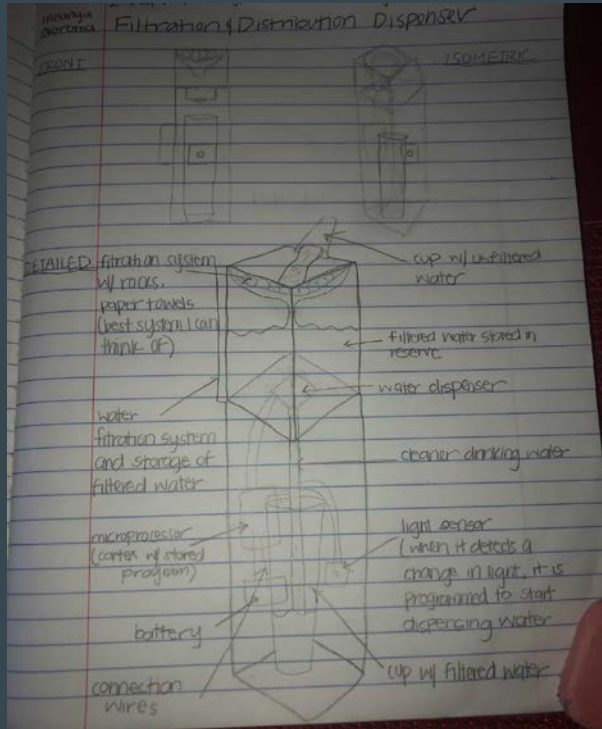 Filtration & Distribution Dispenser
FRONT
ISOMETRIC
DETAILED
filtration system
w/ rocks,
paper towels
(best system I can
think of)
cup w/ unfiltered
water
filtered water stored in
reserve
water dispenser
water
filtration system
and storage of
filtered water
cleaner drinking water
microprocessor
(cortex w/ stored
program)
light sensor
(when it detects a
change in light, it is
programmed to start
dispencing water
battery
cup w/ filtered water
connection
wires